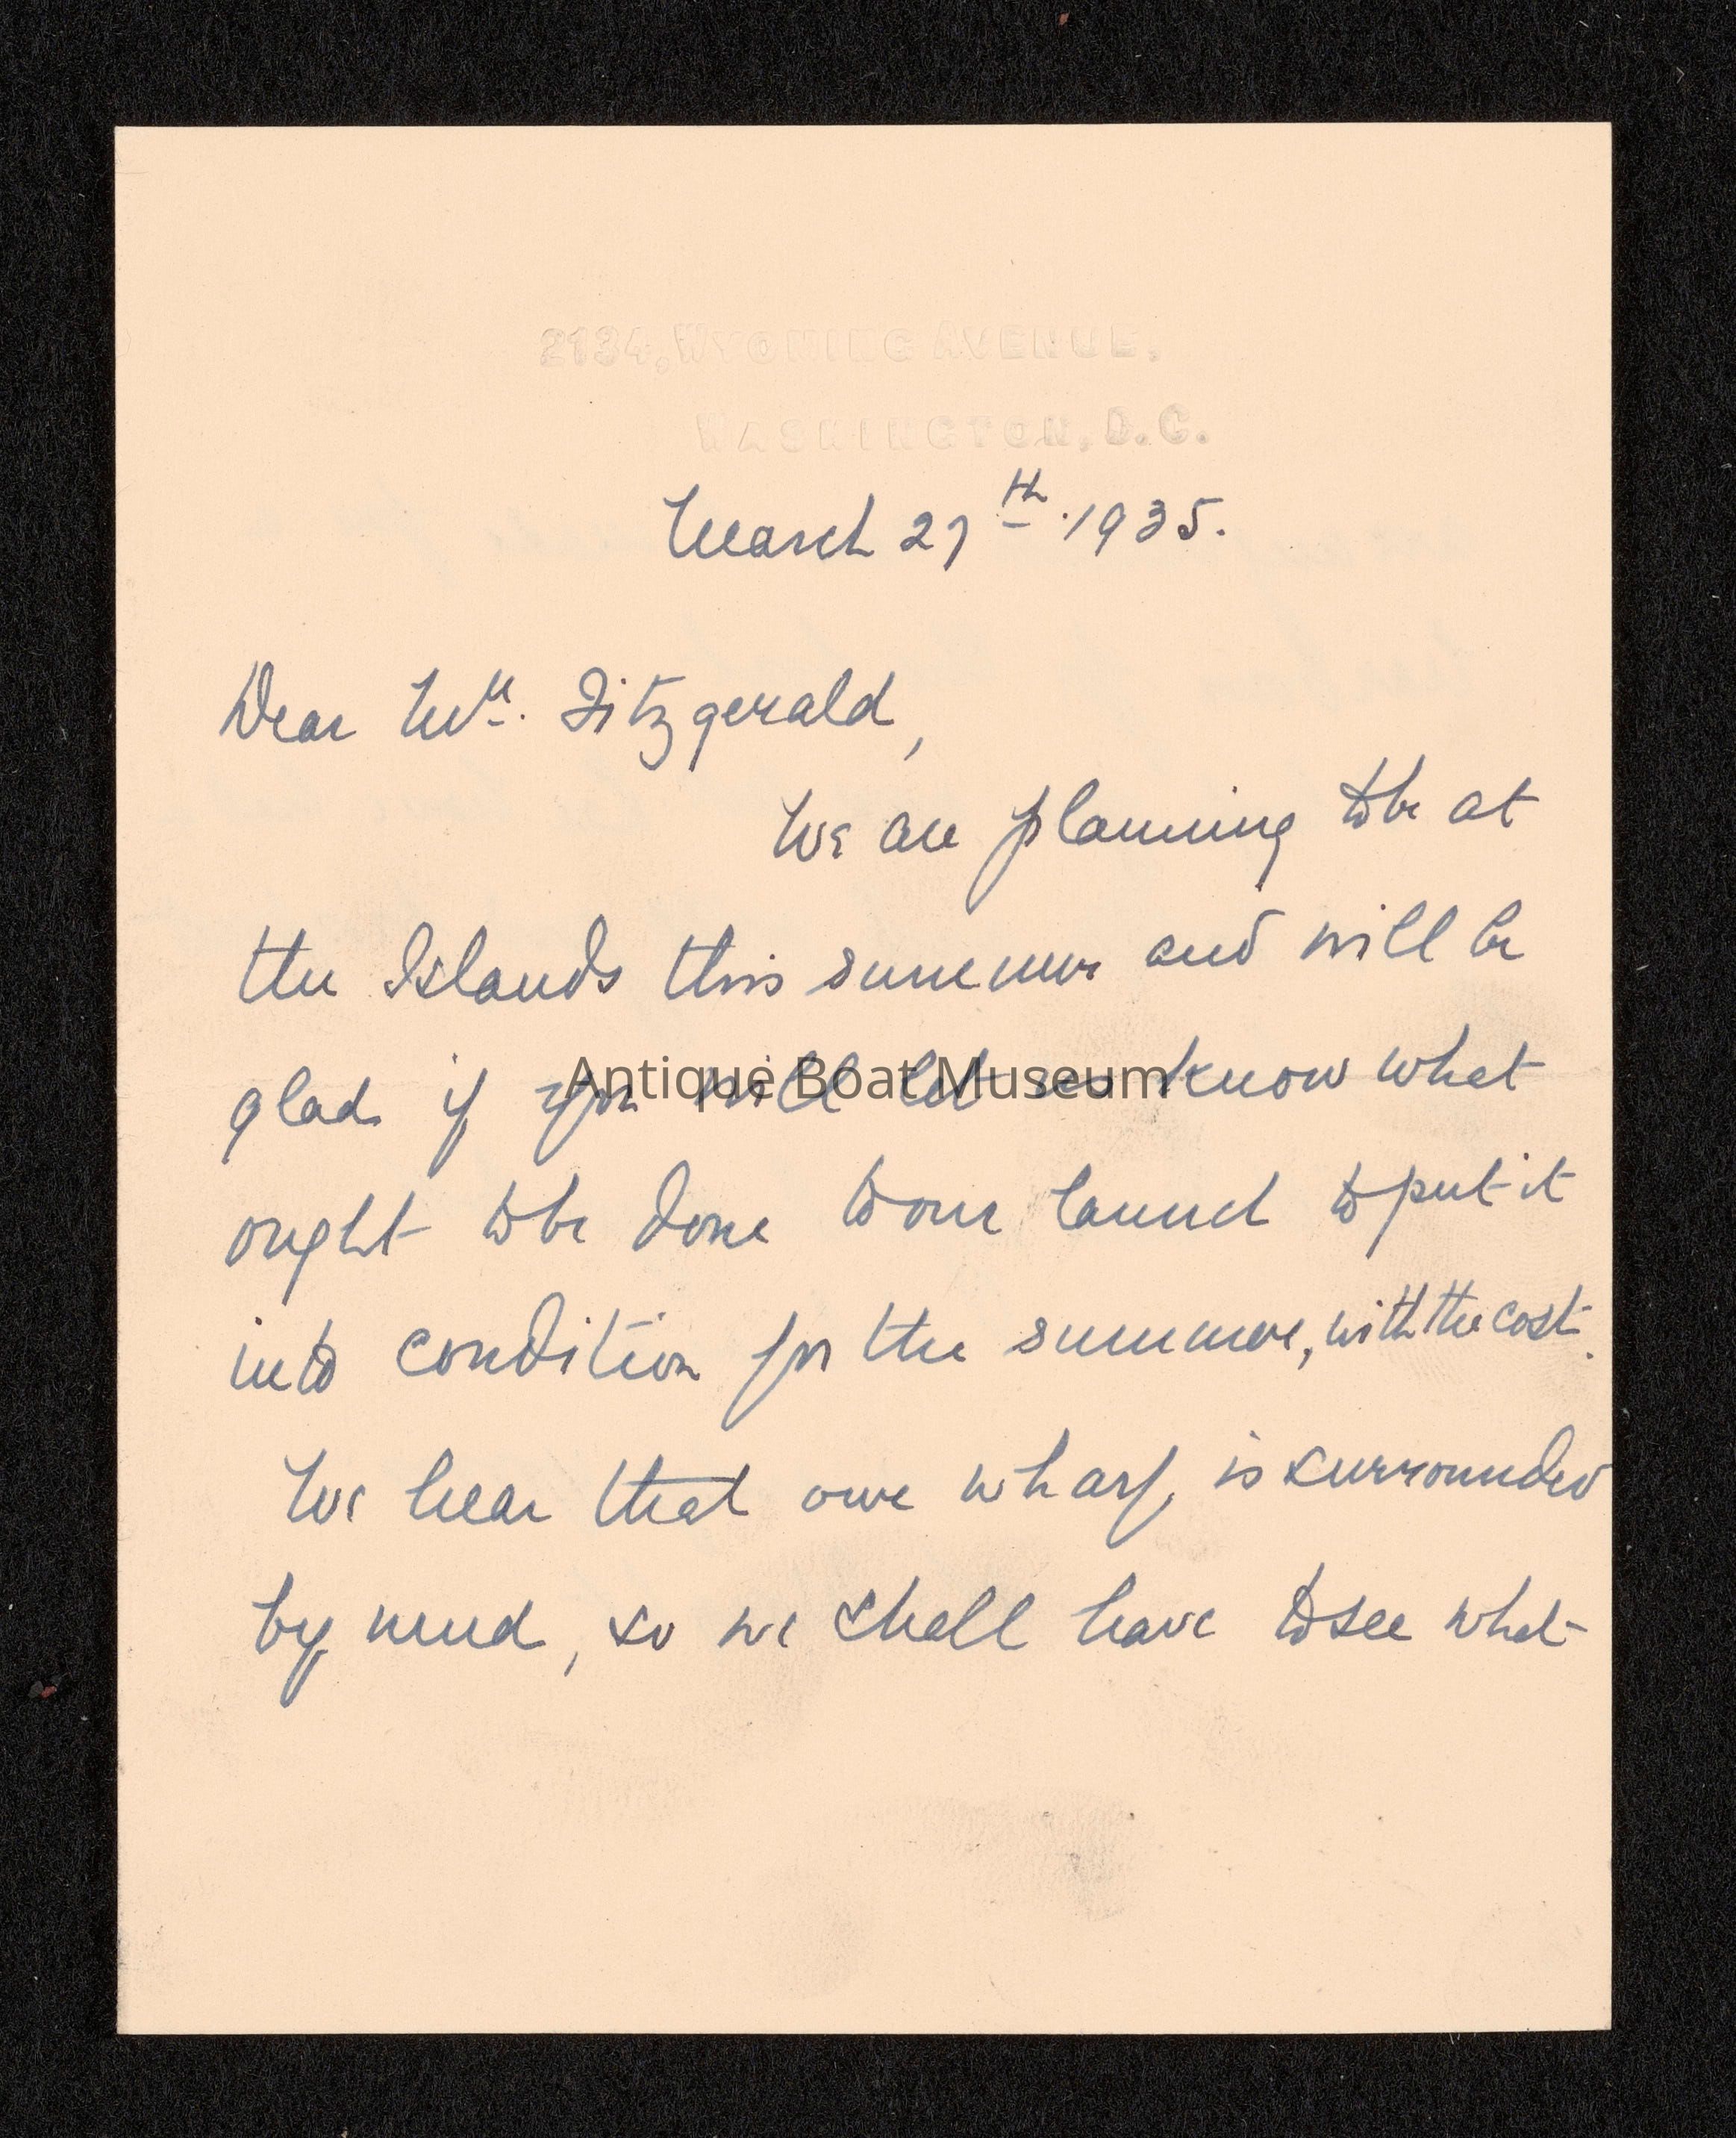 2134, WYOMING AVENUE.
WASHINGTON, D.C.
March 27th. 1935.
Dear Mr. Fitzgerald,
We are planning to be at
the Islands this summer and will be
glad if you will let us know what
Antique Boat Museum
ought to be done to our launch to put it
into condition for the summer, with the cost.
We hear that our wharf is surrounded
by mud, so we shall have to see what